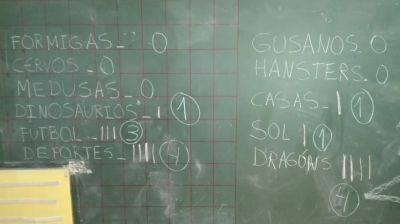 FORMIGAS_ 0
CERVOS_ 0
MEDUSAS_ 0
DINOSAURIOS_ | 1
FUTBOL_ ||| 3
DEPORTES_ |||| 4
GUSANOS. 0
HANSTERS. 0
CASAS_ | 1
SOL | 1
DRAGÓNS ||||
4